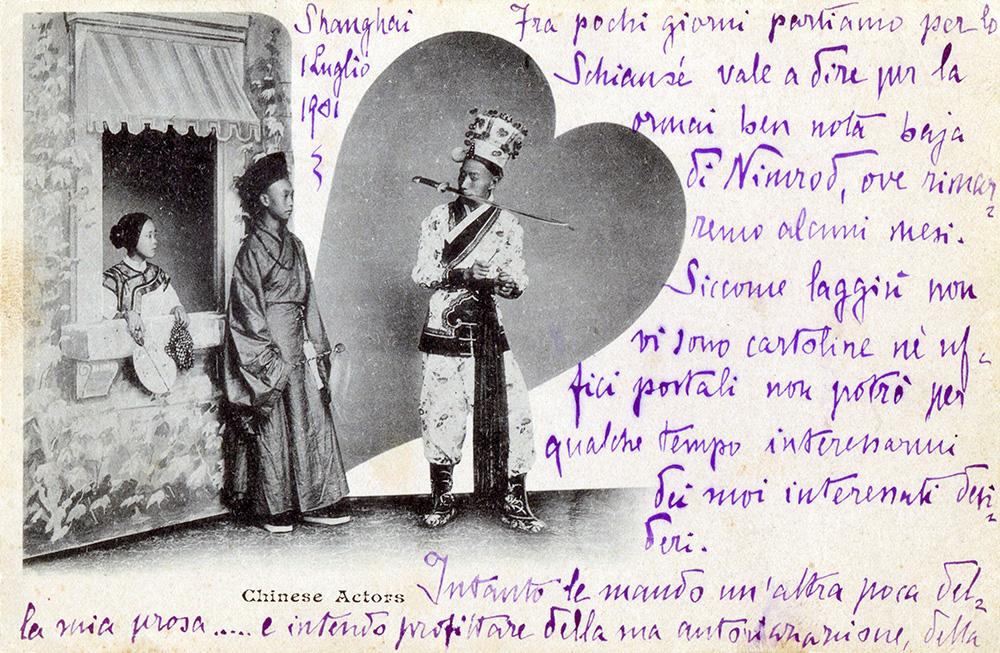 Shanghai
1 Luglio
1901
Fra pochi giorni partiamo per lo
Schiansé vale a dire per la
ormai ben nota baja
di Nimrod, ove rimar=
remo alcuni mesi.
Siccome laggiù non
vi sono cartoline nè uf=
fici postali non potrò per
qualche tempo interessarmi
dei suoi interessati desi=
deri.
Chinese Actors
Intanto le mando un'altra poca del=
la mia prosa..... e intendo profittare della sua autorizzazione, della